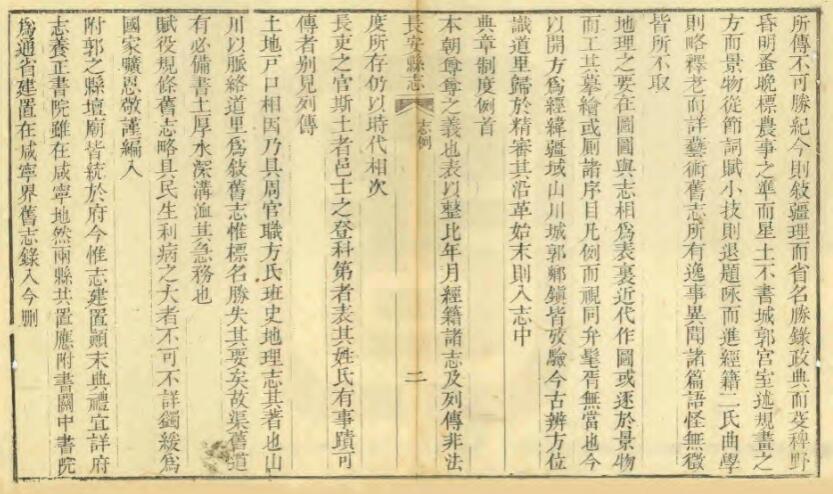 所傳不可勝紀今則敘疆理而省名勝錄政典而芟稗野
昏明蚤晚標農事之準而星土不書城郭官室述規畫之
方而景物從節詞賦小技則退題咏而進經籍二氏曲學
則略釋老而詳藝術舊志所有逸事異聞諸篇語怪無徵
皆所不取
地理之要在圖圖與志相爲表裏近代作圖或逐於景物
而工其摹繪或厠諸序目凡例而視同弁髦胥無當也今
以開方爲經緯疆域山川城郭鄉鎮皆攷驗今古辨方位
識道里歸於精審其沿革始末則入志中
典章制度例首
本朝尊尊之義也表以整比年月經籍諸志及列傳非法
長安縣志
志例
二
度所存仍以時代相次
長吏之官斯土者邑士之登科第者表其姓氏有事蹟可
傳者别見列傳
土地戸口相因乃具周官職方氏班史地理志其著也山
川以脈絡道里爲敘舊志惟標名勝失其要矣故渠舊道
有必備書土厚水深溝洫其急務也
賦役規條舊志略具民生利病之大者不可不詳蠲緩爲
國家曠恩敬謹編入
附郭之縣壇廟皆統於府今惟志建置顚末典禮宜詳府
志養正書院雖在咸寧地然兩縣共置應附書關中書院
爲通省建置在咸寧界舊志錄入今删